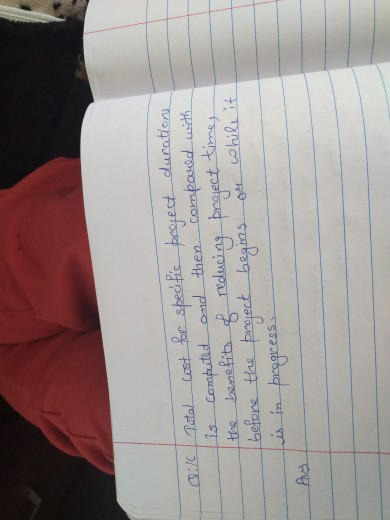 Q:1C Total cost for specific project durations
is computed and then compared with
the benefits of reducing project time,
before the project begins or while it
is in progress.
Ans